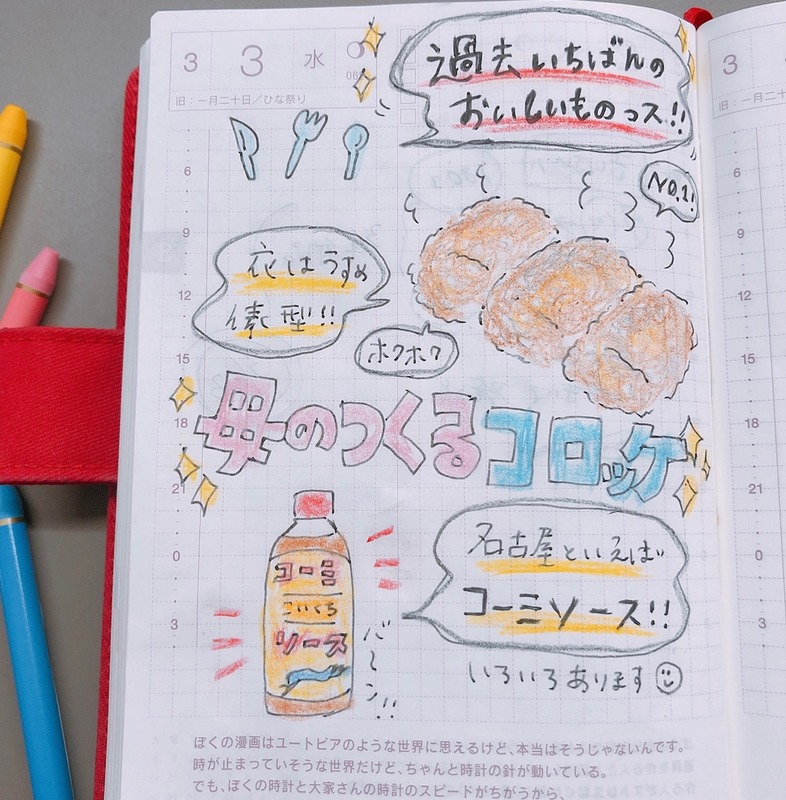 3 3 水
旧:一月二十日/ひな祭り
過去いちばんの
おいしいものっス!!
NO.1!
衣はうすめ
俵型!!
ホクホク
母のつくるコロッケ
コーミ
こいくち
ソース
バーン!!
名古屋といえば
コーミソース!!
いろいろあります
6
9
12
15
18
21
0
3
ぼくの漫画はユートピアのような世界に思えるけど、本当はそうじゃないんです。
時が止まっていそうな世界だけど、ちゃんと時計の針が動いている。
でも、ぼくの時計と大家さんの時計のスピードがちがうから、
3
6
9
12
15
18
21
0
3